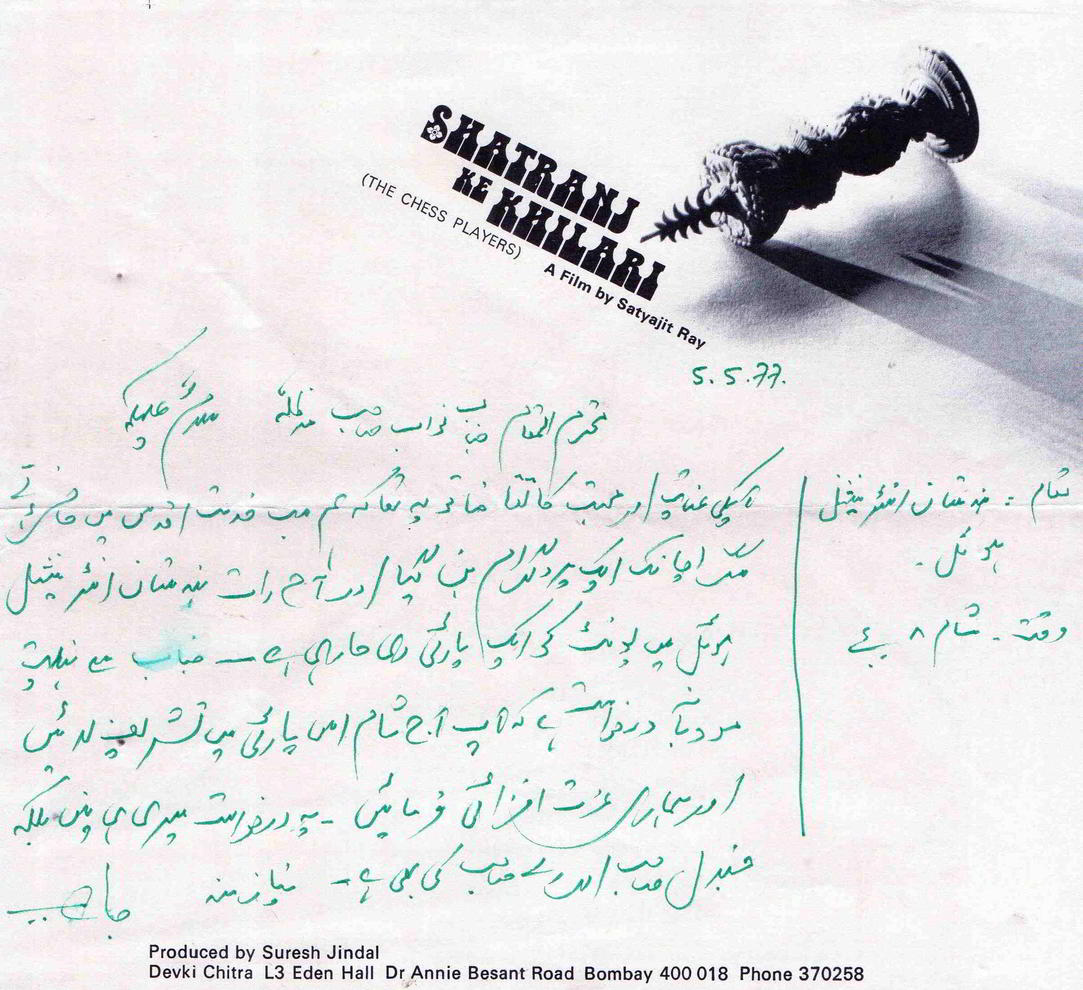 SHATRANJ
KE KHILARI
(THE CHESS PLAYERS)
A Film by Satyajit Ray
5.5.77.
محترم المقام جناب نواب صاحب مدظلہ سلام علیکم
آپکی عنایت اور محبت کا تقاضا تو یہ تھا کہ ہم سب خدمت اقدس میں حاضر ہوتے
مگر اچانک ایک پروگرام بن گیا اور آج رات ہندوستان انٹرنیشنل
ہوٹل میں یونٹ کو ایک پارٹی دی جا رہی ہے ۔ جناب سے نہایت
مودبانہ درخواست ہے کہ آپ آج شام اس پارٹی میں تشریف لائیں
اور ہماری عزت افزائی فرمائیں ۔ یہ درخواست میری ہی نہیں بلکہ
جندل صاحب اور رے صاحب کی بھی ہے ۔ نیازمند
مقام : ہندوستان انٹرنیشنل
ہوٹل ۔
وقت ۔ شام ۸ بجے
Produced by Suresh Jindal
Devki Chitra L3 Eden Hall Dr Annie Besant Road Bombay 400 018 Phone 370258